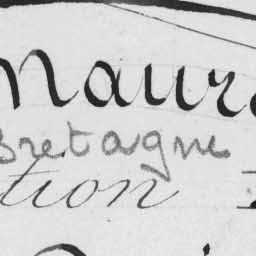 Maur
Bretagne
tion